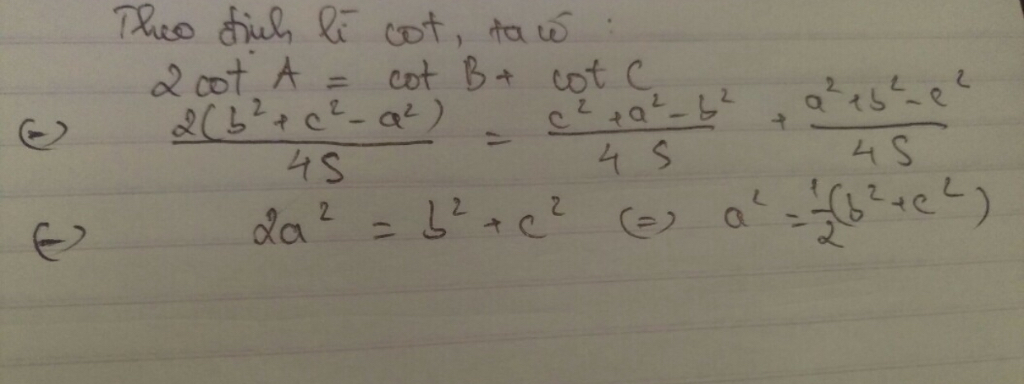 Theo định lí cot, ta có :
2 cot A = cot B + cot C
(=) 2(b² + c² - a²) / 4S = c² + a² - b² / 4S + a² + b² - c² / 4S
(=) 2a² = b² + c² (=) a² = 1/2 (b² + c²)